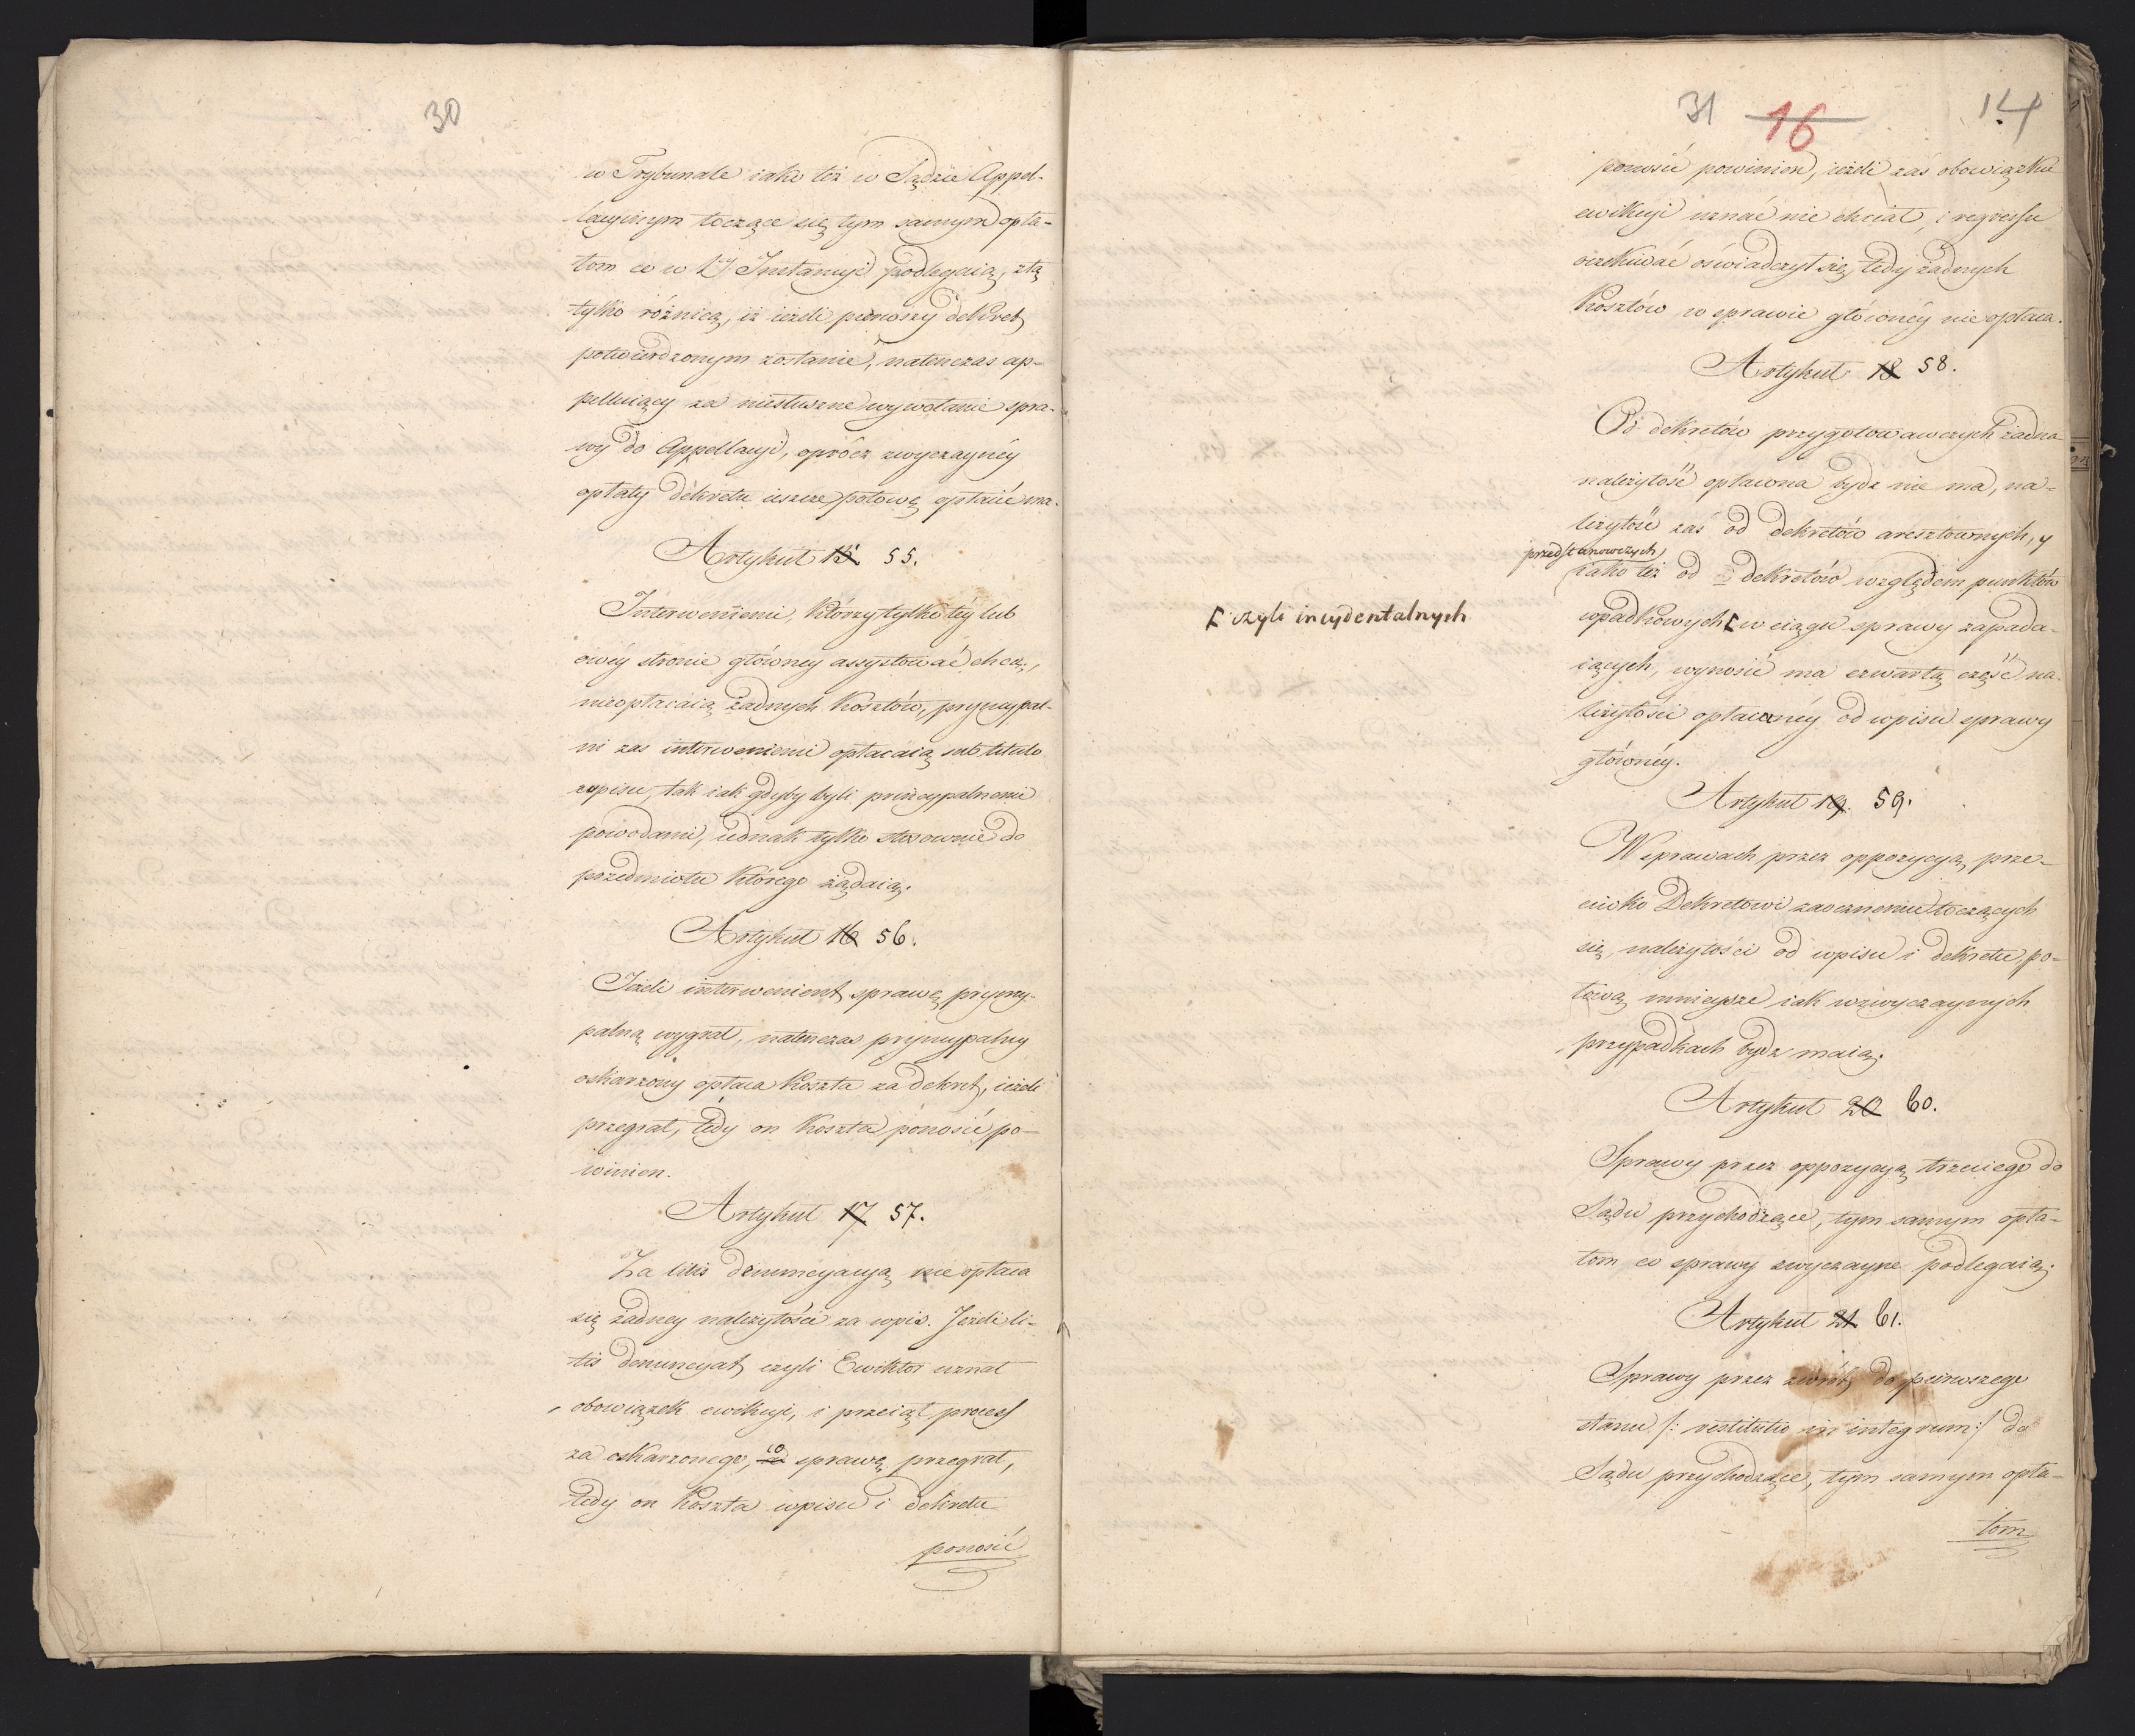 30
w Trybunale iako też w Sądzie Appel-
lacyinym toczące się tym samym opła-
tom co w I Instancyi podlegaią, z tą
tylko różnicą, iż ieżeli pierwszy dekret
potwierdzonym zostanie, natenczas ap-
pelluiący za niesłuszne wywołanie spra-
wy do Appellacyi, oprócz zwyczaynéy
opłaty dekretu ieszcze połowę opłacić ma.
Artykuł 15 55.
Interwenienci, którzy tylko téy lub
owéy stronie główney assystować chcą,
nieopłacaią żadnych kosztów, pryncypal-
ni zas interwenienci opłacaią sub titulo
wpisu, tak iak gdyby byli princypalnemi
powodami, iednak tylko stosownie do
przedmiotu którego żądaią.
Artykuł 16 56.
Jeżeli interwenient sprawę pryncy-
palną wygrał, natenczas pryncypalny
oskarzony opłaca koszta za dekret, ieżeli
przegrał, tedy on koszta ponosić po-
winien.
Artykuł 17 57.
Za litis denuncyacyą nie opłaca
się żadney należytości za wpis. Jeżeli li-
tis denuncyat czyli Ewiktor uznał
obowiązek ewikcyi, i przeiął process
za oskarzonego, co sprawę przegrał,
tedy on koszta wpisu i dekretu
ponosić
31 16 14
ponosić powinien, ieżeli zaś obowiązku
ewikcyi uznać nie chciał, i regressu
oczekiwać oświadczył się, tedy żadnych
kosztów w sprawie główney nie opłaca.
Artykuł 18 58.
Od dekretów przygotowawczych żadna
należytość opłacona bydz nie ma, na-
leżytość zaś od dekretów aresztownych, y
przedstanowczych,
iako też od dekretów względem punktów
wpadkowych [ w ciągu sprawy zapada-
[ czyli incydentalnych
iących, wynosić ma czwartą część na-
leżytości opłaconéy od wpisu sprawy
główney.
Artykuł 19. 59.
W sprawach przez oppozycyą prze-
ciwko Dekretowi zaocznemu toczących
się, należytości od wpisu i dekretu, po-
łową mnieysze iak w zwyczaynych
przypadkach bydz maią.
Artykuł 20 60.
Sprawy przez oppozycyą trzeciego do
Sądu przychodzące, tym samym opła-
tom co sprawy zwyczayne podlegaią.
Artykuł 21 61.
Sprawy przez zwrót do pierwszego
stanu /: restitutio in integrum :/ do
Sądu przychodzące, tym samym opła-
tom